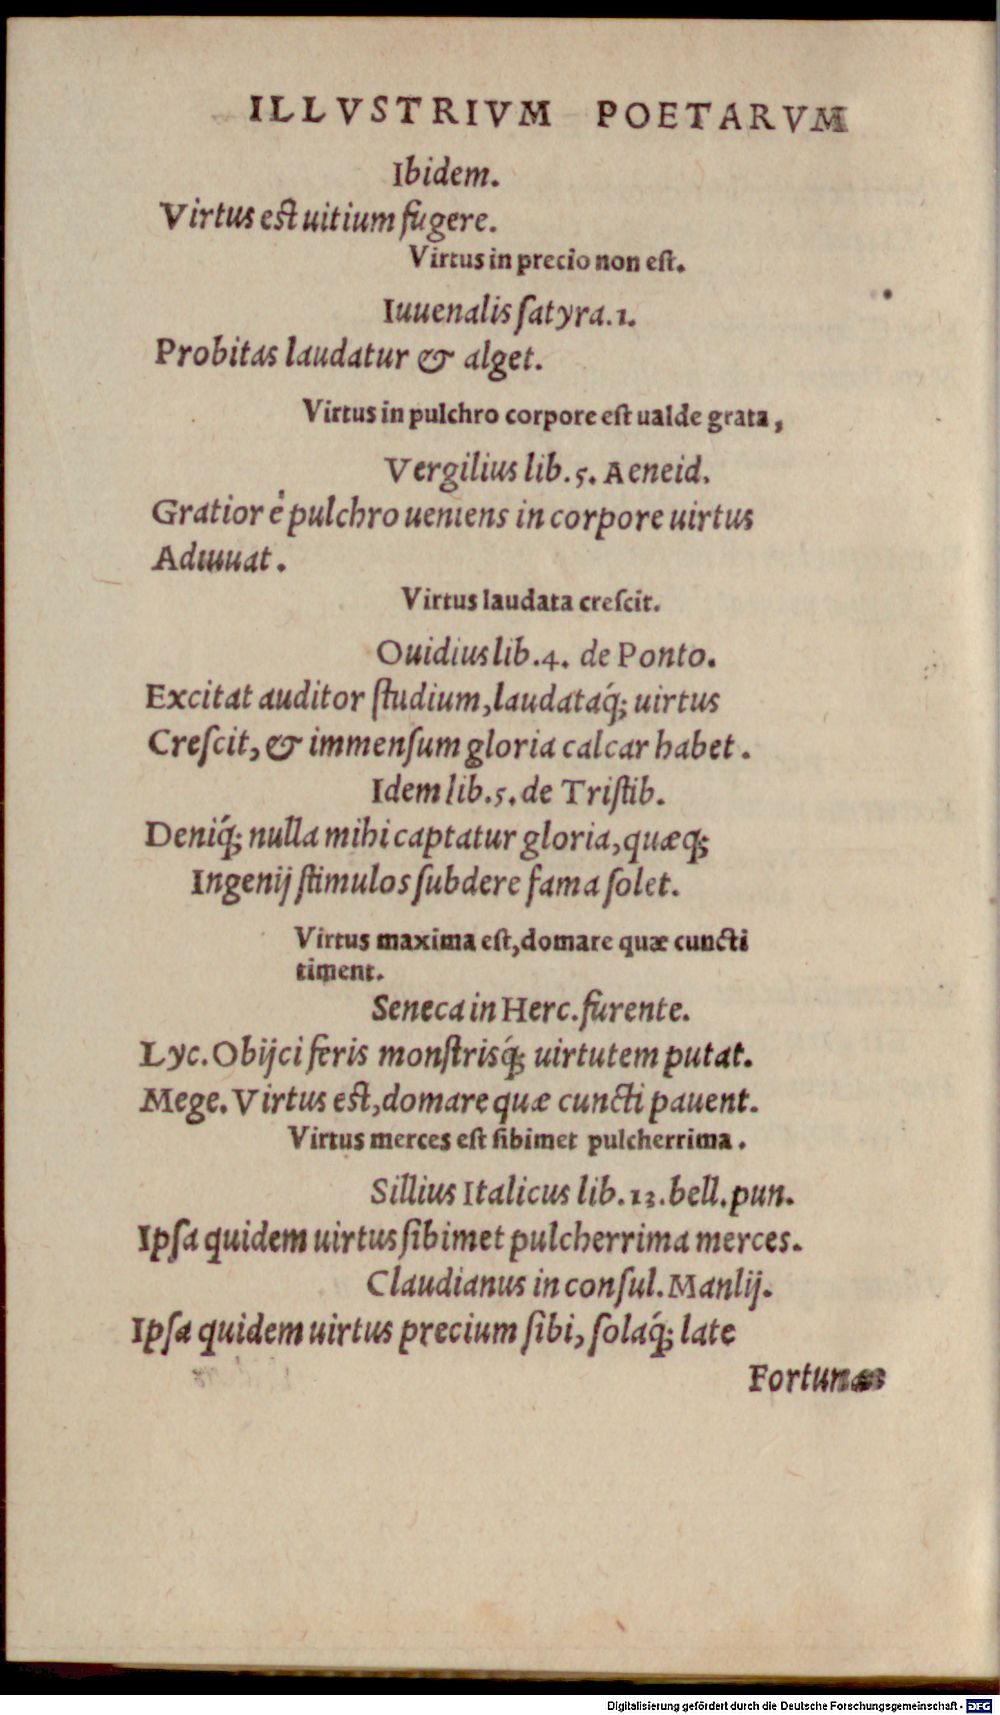 ILLVSTRIVM POETARVM
Ibidem.
Virtus est uitium fugere.
Virtus in precio non eſt.
Iuuenalis ſatyra.1.
Probitas laudatur & alget.
Virtus in pulchro corpore eſt ualde grata,
Vergilius lib.5. Aeneid.
Gratior è pulchro ueniens in corpore uirtus
Adiuuat.
Virtus laudata creſcit.
Ouidius lib.4. de Ponto.
Excitat auditor ſtudium, laudataq́; uirtus
Creſcit, & immenſum gloria calcar habet.
Idem lib.5. de Triſtib.
Deniq́; nulla mihi captatur gloria, quæq;
Ingenij ſtimulos ſubdere fama ſolet.
Virtus maxima eſt, domare quæ cuncti
timent.
Seneca in Herc. furente.
Lyc. Obijci feris monſtrisq́; uirtutem putat.
Mege. Virtus est, domare quæ cuncti pauent.
Virtus merces eſt ſibimet pulcherrima.
Sillius Italicus lib.13. bell. pun.
Ipſa quidem uirtus ſibimet pulcherrima merces.
Claudianus in conſul. Manlij.
Ipſa quidem uirtus precium ſibi, ſolaq́; late
Fortunæ
Digitalisierung gefördert durch die Deutsche Forschungsgemeinschaft - DFG